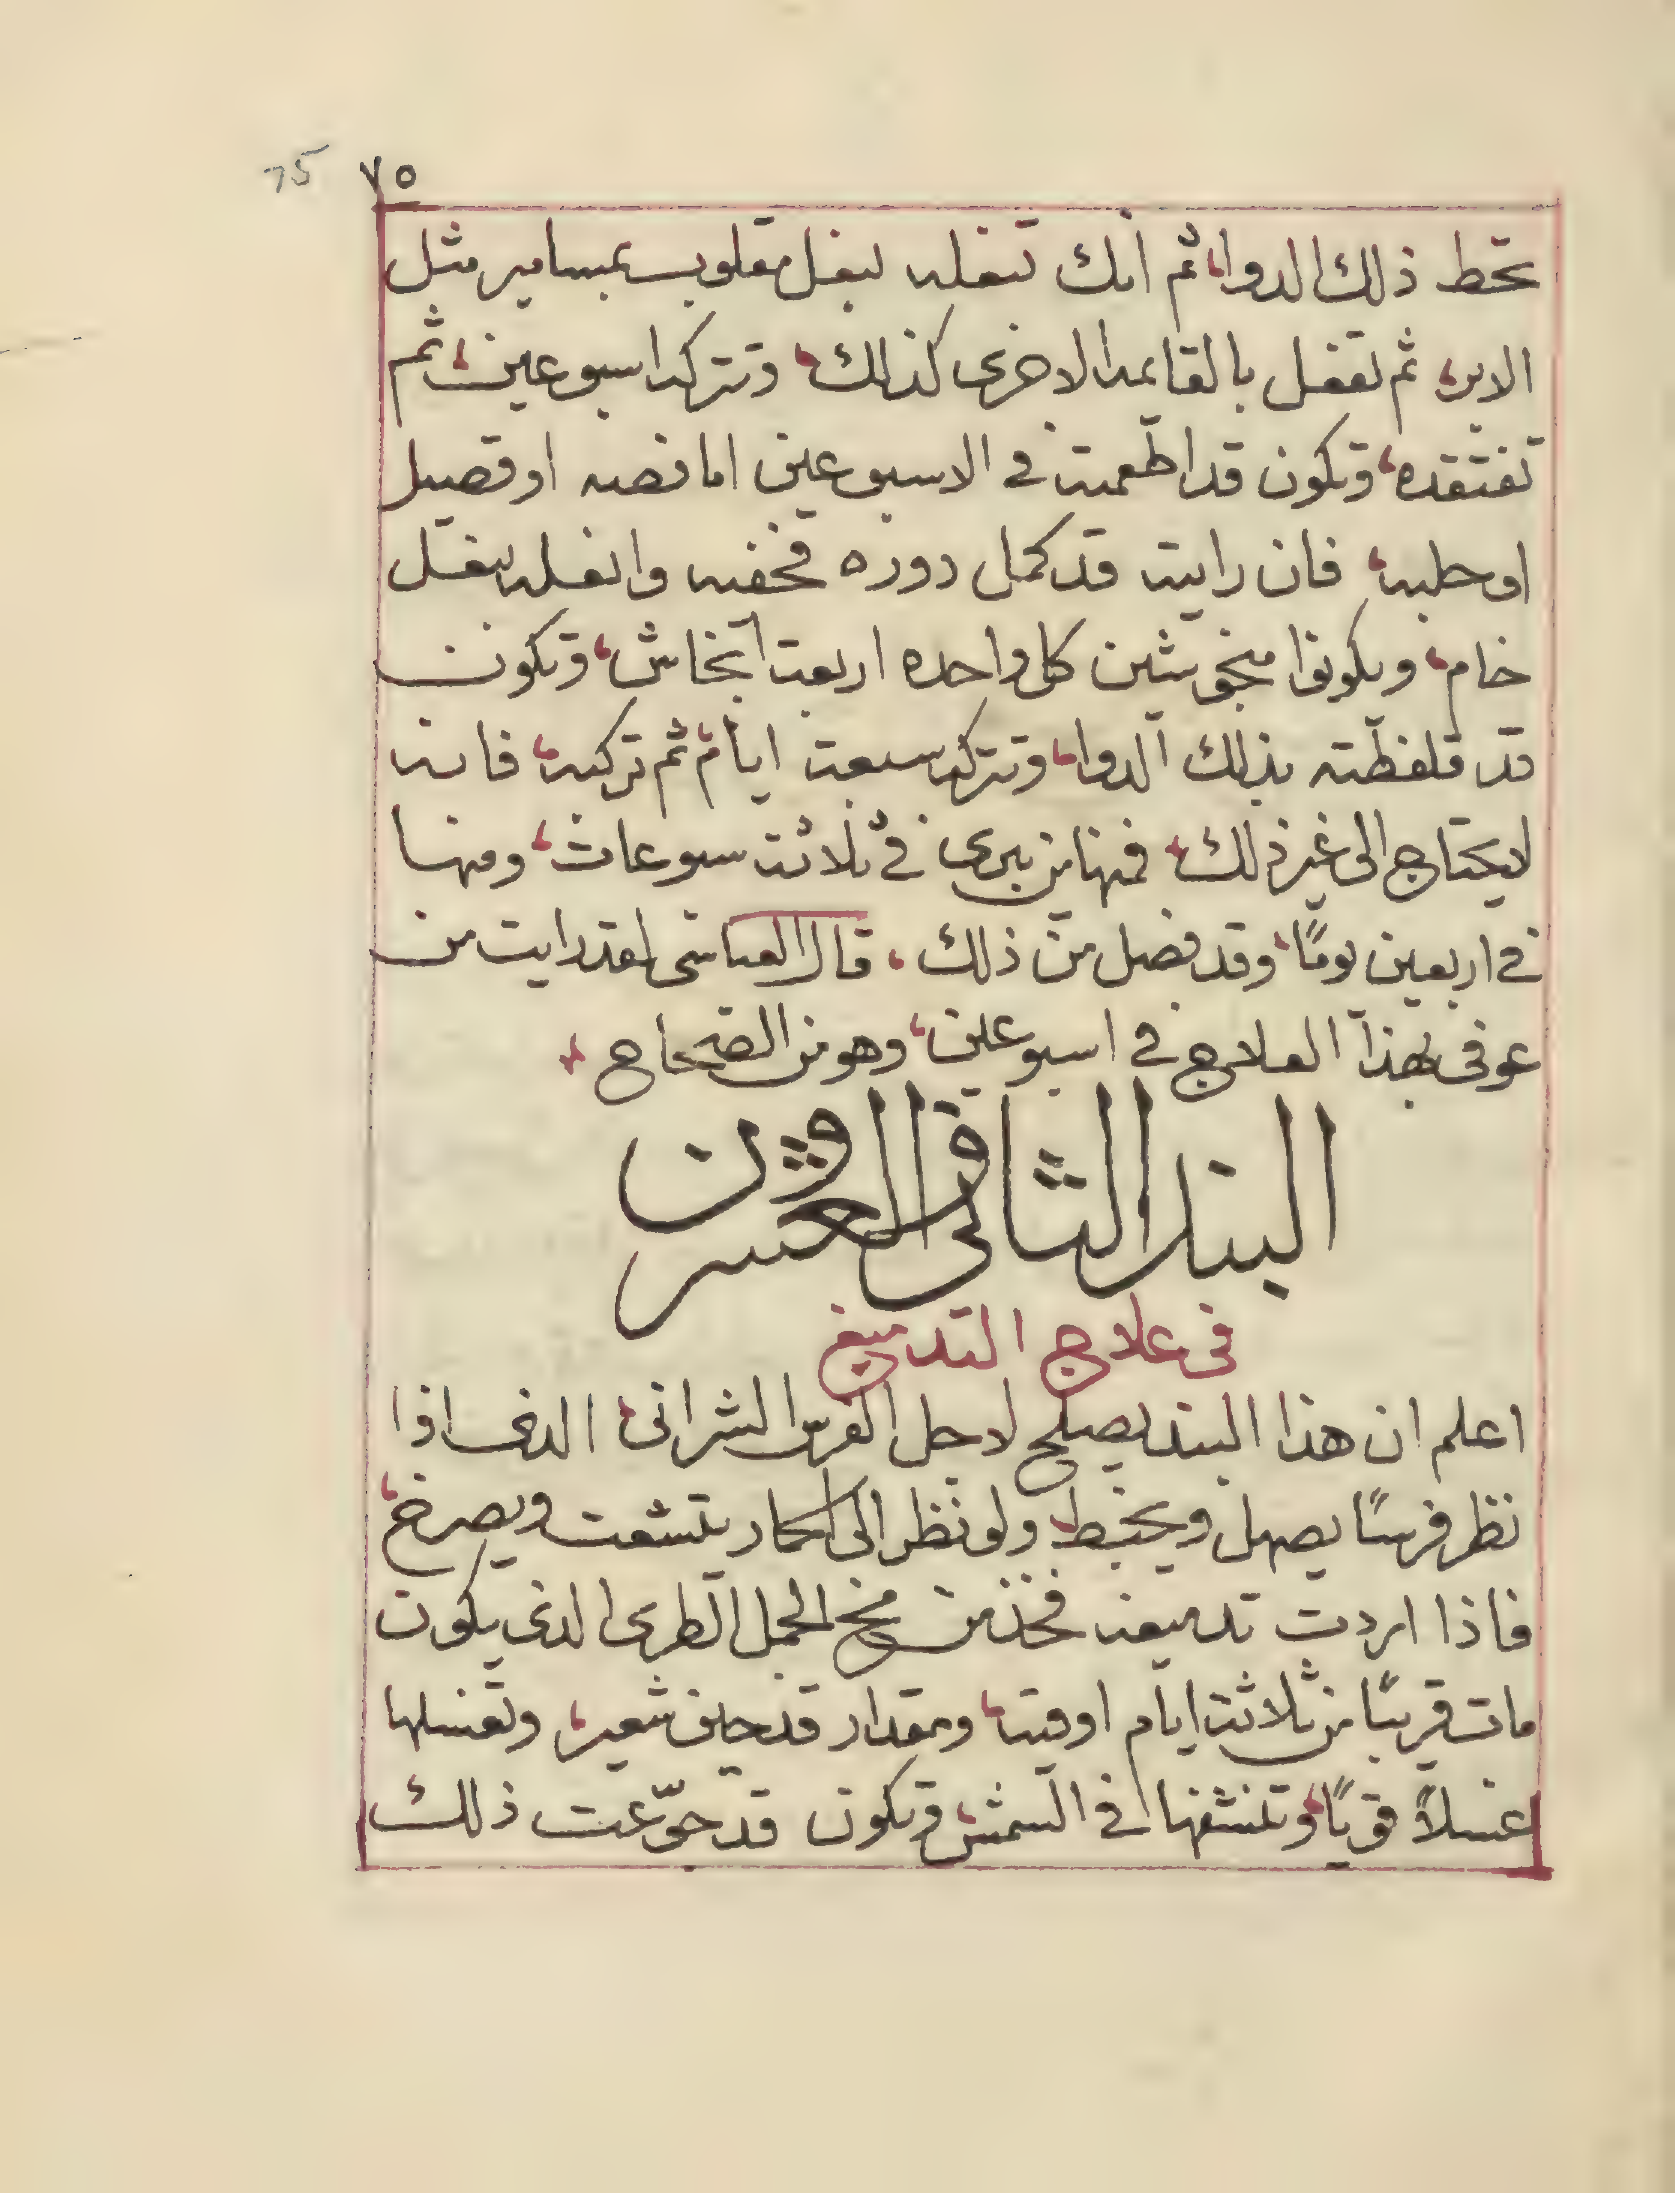 75 ٧٥
تحط ذلك الدوا، ثم انك تنعله بنعل مقلوب بمسامير مثل
الابر، ثم تفعل بالقايمه الاخرى كذلك، وتتركه اسبوعين، ثم
تفتقده، وتكون قد اطعمته في الاسبوعين اما فصه او قصيل
او حلبه، فان رايته قد كمل دوره فحفنه وانعله بنعل
خام، ويكونوا منجوشين كل واحده اربعة انخاش، وتكون
قد قلفطته بذلك الدوا، وتتركه سبعة ايام ثم تركبه، فانه
لا يحتاج الى غير ذلك، فمنها من يبرى في ثلاثة سبوعات، ومنها
في اربعين يومًا، وقد فصل من ذلك، قال العباسى لقد رايت من
عوفى بهذا العلاج في اسبوعين، وهو من الصحاح
البند الثانى والعشرون
فى علاج التدميغ
اعلم ان هذا البند يصلح لاجل الفرس الشرانى، الذى اذا
نظر فرسًا يصهل ويخبط، ولو نظر الى الحمار يتشعت ويصرخ،
فاذا اردت تدميغه فخذ من مخ الجمل الطرى الذى يكون
مات قريبًا من ثلاثة ايام اوقية، ومقدار قدحين شعير، وتغسلها
غسلاً قويًا، وتنشفها في الشمس، وتكون قد جوّعت ذلك